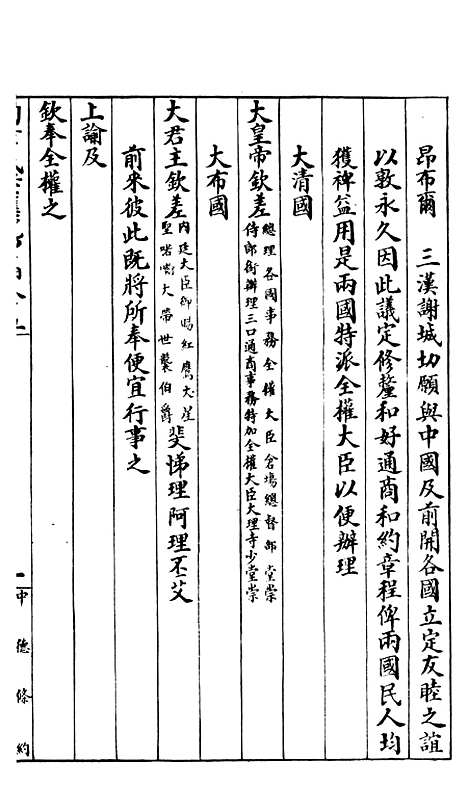 昂布爾　三漢謝城切願與中國及前開各國立定友睦之誼
以敦永久因此議定修釐和好通商和約章程俾兩國民人均
獲裨益用是兩國特派全權大臣以便辦理
大清國
大皇帝欽差總理各國事務全權大臣倉場總督部堂崇
侍郎銜辦理三口通商事務特加全權大臣大理寺少堂崇
大布國
大君主欽差內廷大臣御賜紅鷹大星
聖喏嘶大帶世襲伯爵斐悌理阿理丕艾
前來彼此既將所奉便宜行事之
上諭及
欽奉全權之
中德條約